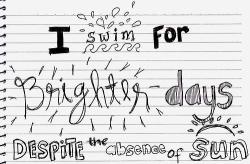 I swim for
Brighter days
DESPITE the absence of sun